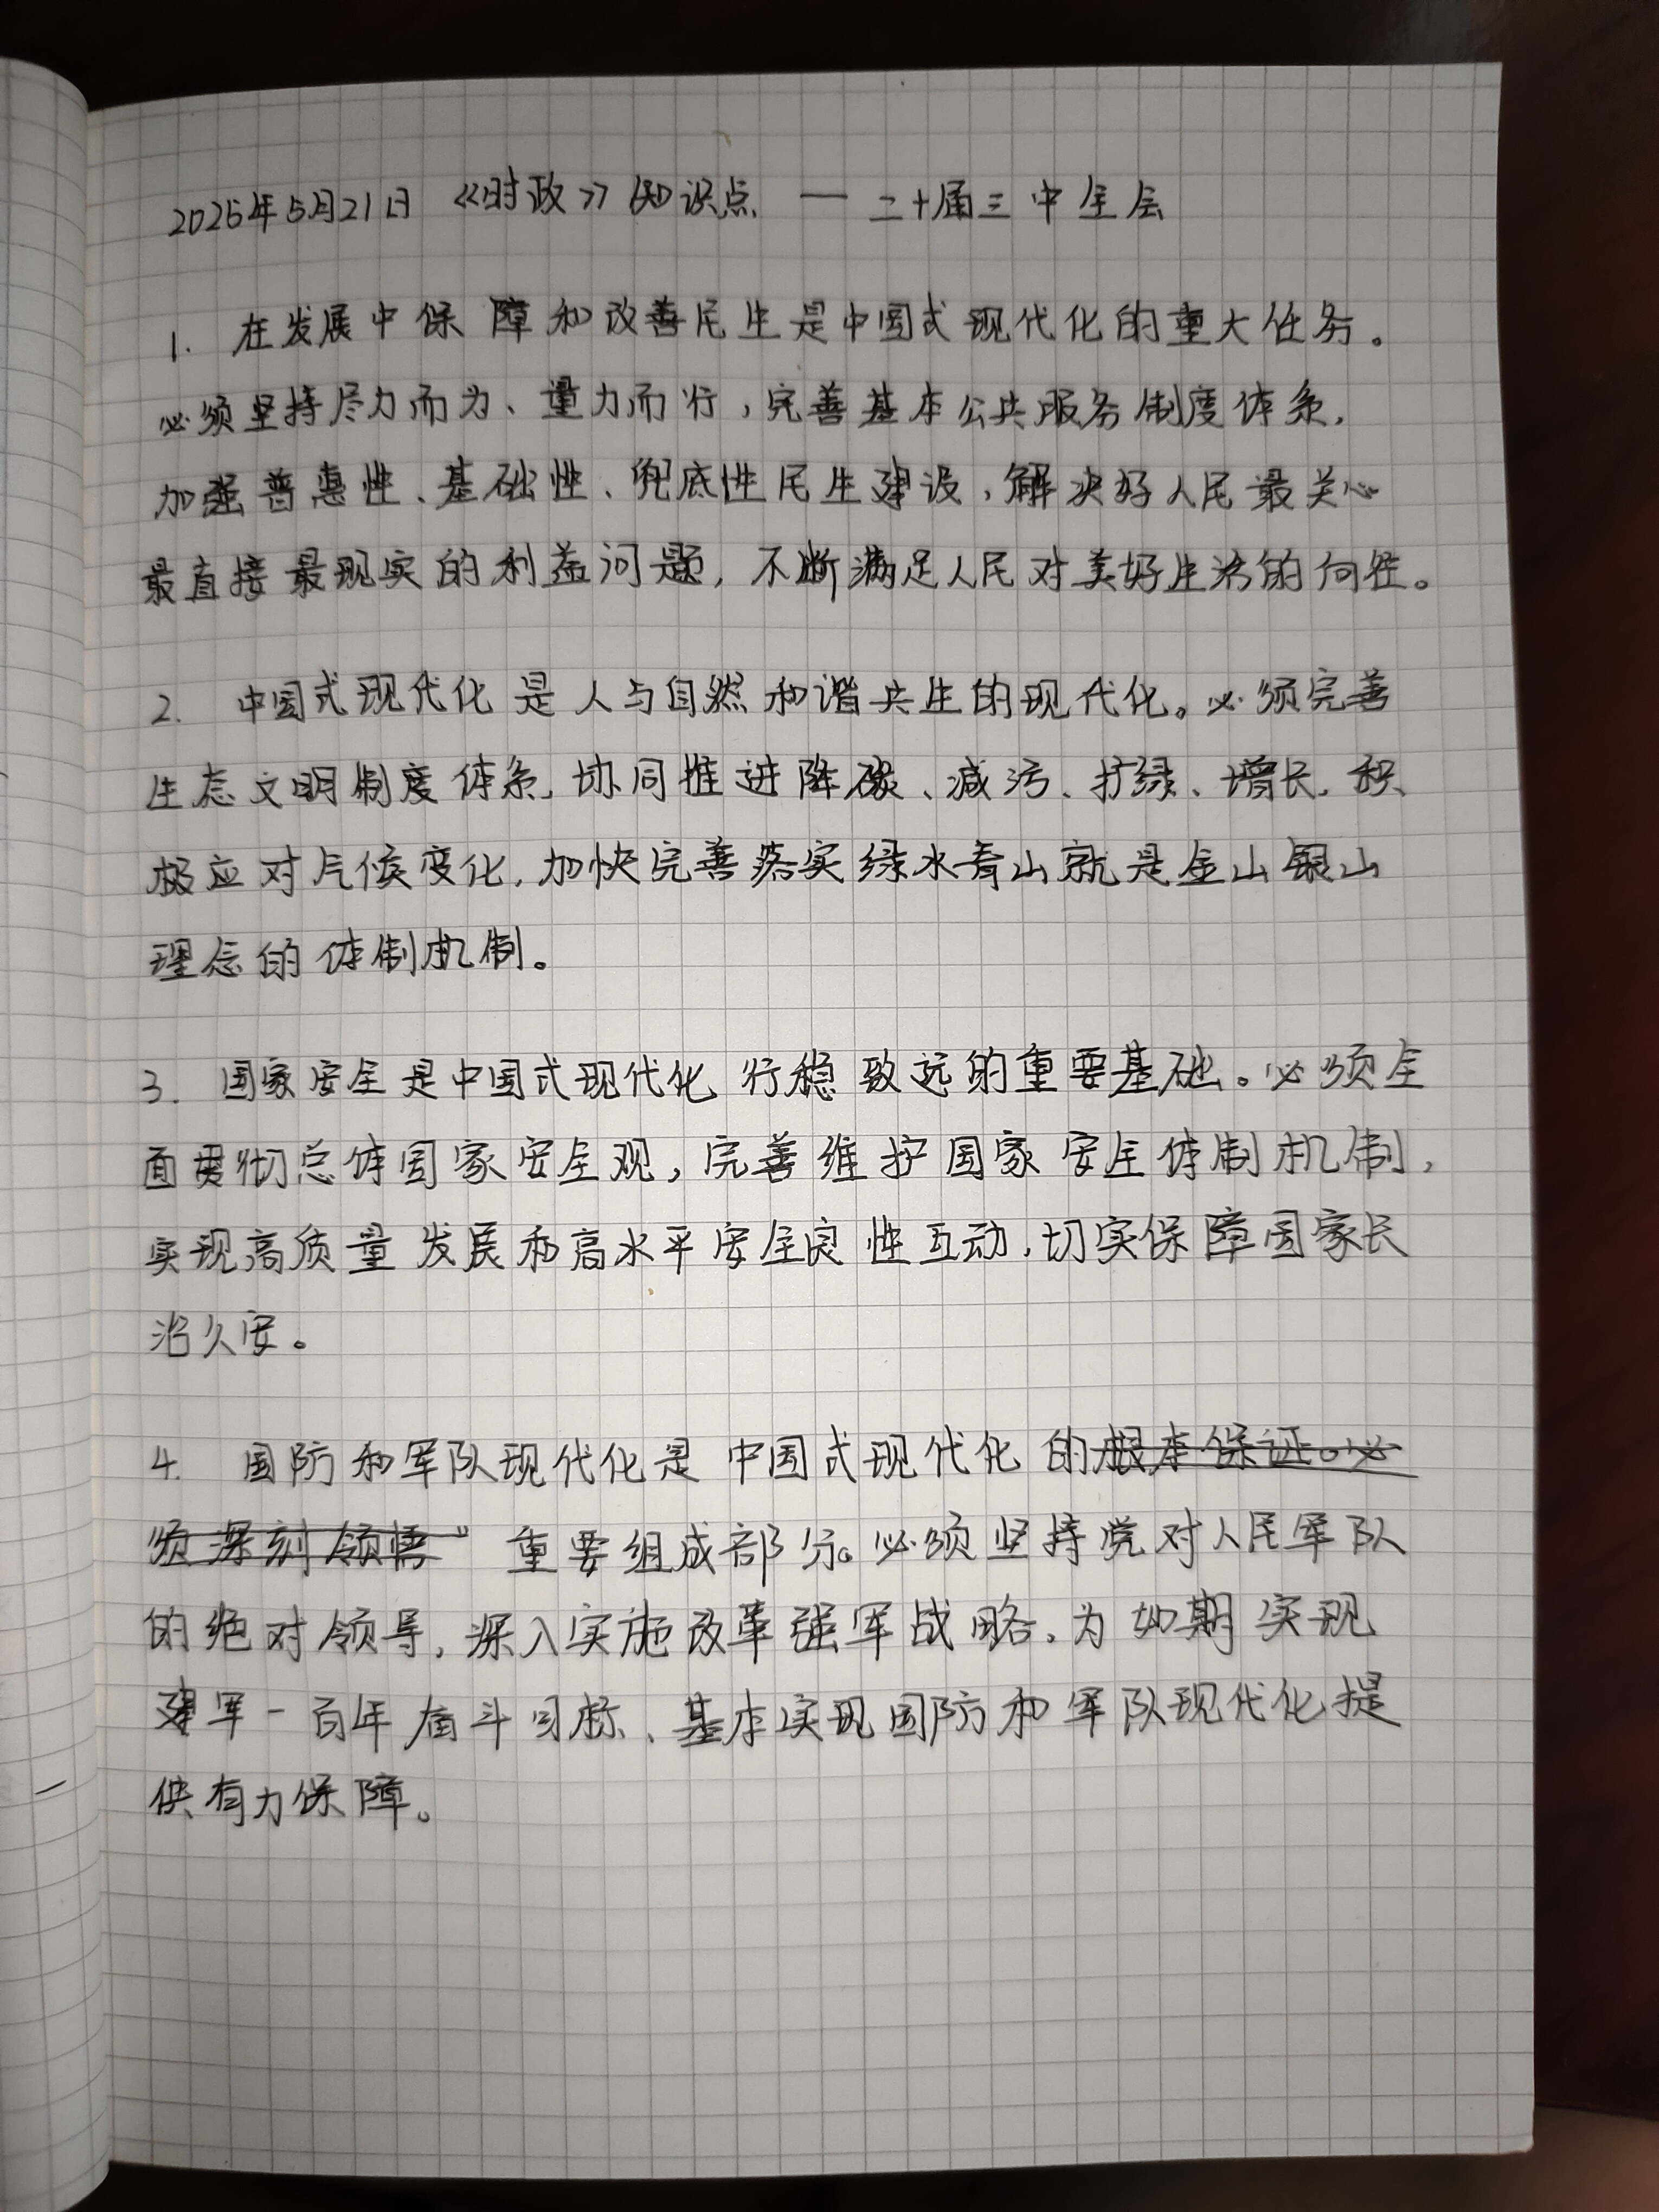 2025年5月21日 《时政》知识点 — 二十届三中全会
1. 在发展中保障和改善民生是中国式现代化的重大任务。
必须坚持尽力而为、量力而行，完善基本公共服务制度体系，
加强普惠性、基础性、兜底性民生建设，解决好人民最关心
最直接最现实的利益问题，不断满足人民对美好生活的向往。
2. 中国式现代化是人与自然和谐共生的现代化。必须完善
生态文明制度体系，协同推进降碳、减污、扩绿、增长，积
极应对气候变化，加快完善落实绿水青山就是金山银山
理念的体制机制。
3. 国家安全是中国式现代化行稳致远的重要基础。必须全
面贯彻总体国家安全观，完善维护国家安全体制机制，
实现高质量发展和高水平安全良性互动，切实保障国家长
治久安。
4. 国防和军队现代化是中国式现代化的根本保证。必
须深刻领悟” 重要组成部分。必须坚持党对人民军队
的绝对领导，深入实施改革强军战略，为如期实现
建军一百年奋斗目标、基本实现国防和军队现代化提
供有力保障。